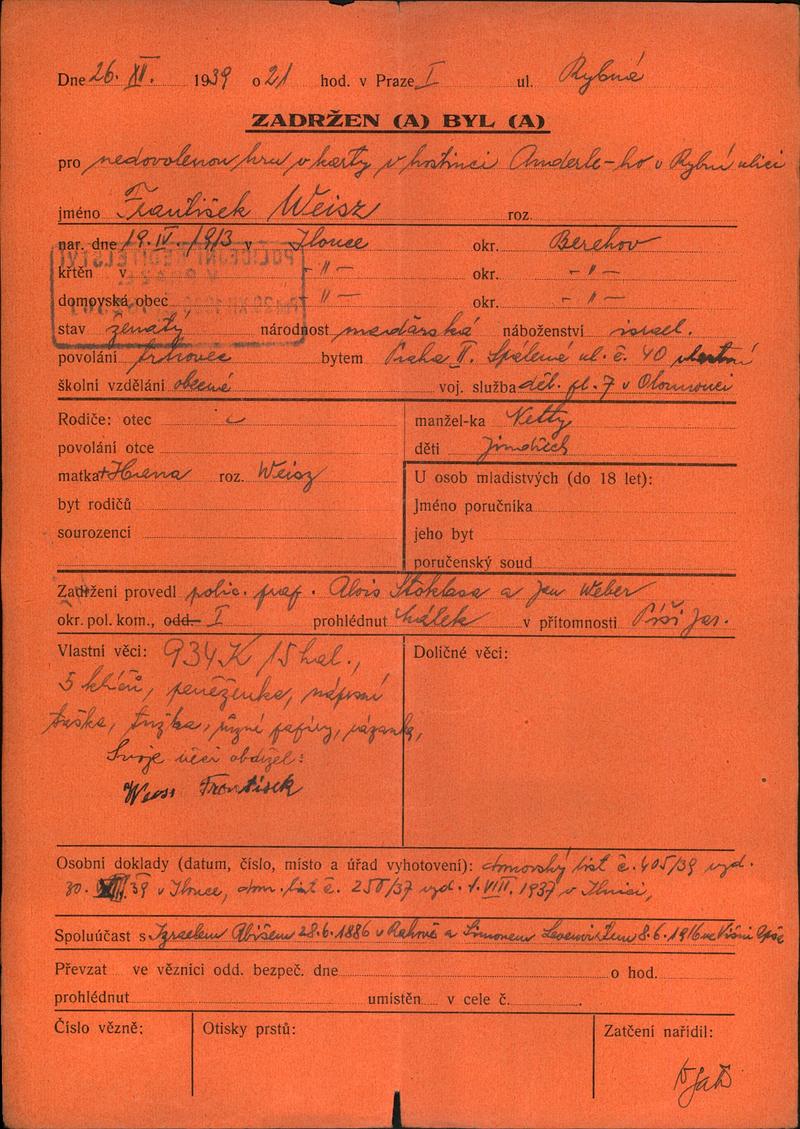 Dne 26. XII. 1939 o 21 hod. v Praze I ul. Rybné
ZADRŽEN (A) BYL (A)
pro nedovolenou hru v karty v hostinci Anderle-ho v Rybné ulici
jméno František Weisz roz.
nar. dne 19. IV. 1913 v Ilonce okr. Berehov
křtěn v -"- okr. -"-
domovská obec -"- okr. -"-
stav ženatý národnost maďarská náboženství israel.
povolání bytem Praha II. Spálená ul. č. 40 vlastní
školní vzdělání obecné voj. služba děl. pl. 7 v Olomouci
Rodiče: otec
manžel-ka Netty
povolání otce
děti Jindřich
matka roz. Weisz
U osob mladistvých (do 18 let):
byt rodičů
Jméno poručníka
sourozenci
jeho byt
poručenský soud
Zadržení provedl polic. Alois Stoklasa a Jan Weber
okr. pol. kom., odd. I prohlédnut v přítomnosti
Vlastní věci: 934 K 15 hal.,
Doličné věci:
5 klíčů, peněženka, náprsní
taška, tužka, různé papíry, vázanka,
Svoje věci obdržel:
František
Osobní doklady (datum, číslo, místo a úřad vyhotovení): domovský list č. 405/39 vyd.
30. 39 v Ilonce, dom. list č. 250/37 vyd. 1. VIII. 1937 v Ilnici,
Spoluúčast s Izraelem Abišem 28.6.1886 v a Simonem 8.6.1916 ve Višní Apše
Převzat ve věznici odd. bezpeč. dne o hod.
prohlédnut umístěn v cele č.
Číslo vězně: Otisky prstů: Zatčení nařídil: